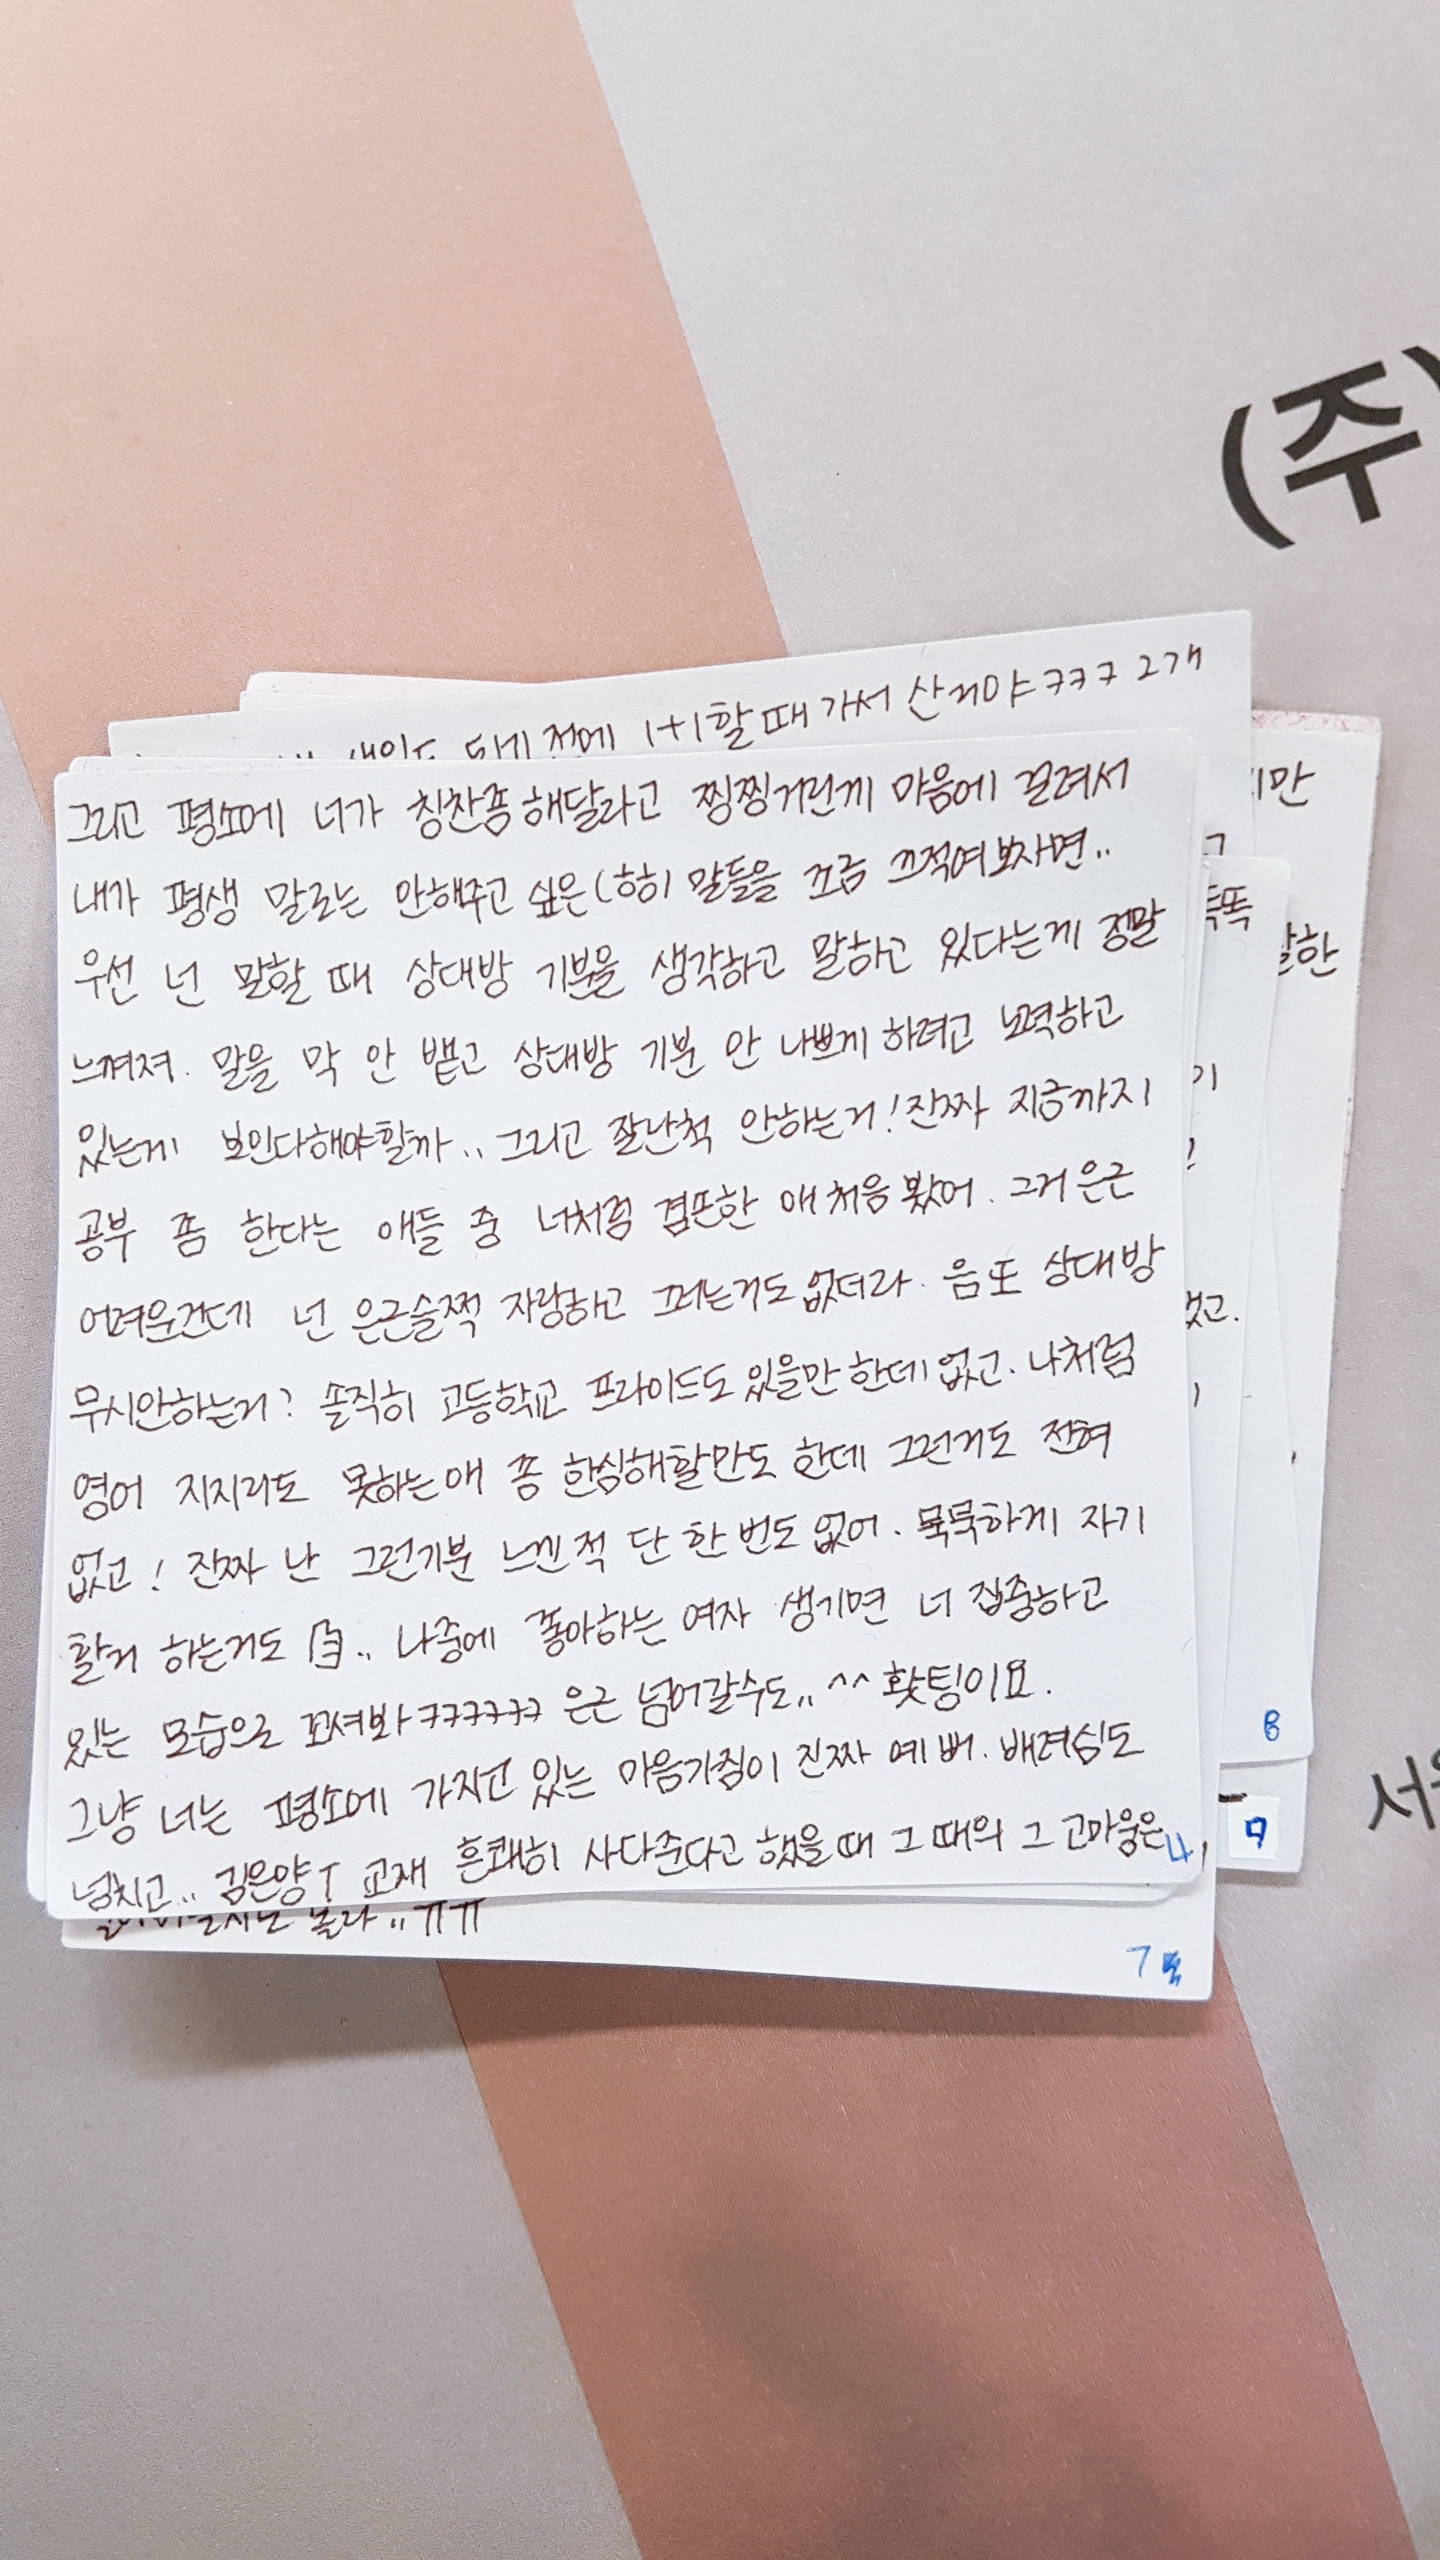 (주)
1+1할 때 가서 산거야ㅋㅋㅋ 2개
그리고 평소에 너가 칭찬좀해달라고 찡찡거린게 마음에 걸려서
내가 평생 말로는 안해주고 싶은(히히) 말들을 쪼금 끄적여보자면..
우선 넌 말할 때 상대방 기분을 생각하고 말하고 있다는게 정말
느껴져. 말을 막 안 뱉고 상대방 기분 안 나쁘게 하려고 노력하고
있는게 보인다해야할까.. 그리고 잘난척 안하는거! 진짜 지금까지
공부 쫌 한다는 애들 중 너처럼 겸픈한 애 처음 봤어. 그거 은근
어려운건데 넌 은근슬쩍 자랑하고 그러는거도 없더라. 음 또 상대방
무시안하는거? 솔직히 고등학교 프라이드도 있을만 한데 없고. 나처럼
영어 지지리도 못하는애 쫌 한심해할만도 한데 그런거도 전혀
없고! 진짜 난 그런기분 느낀적 단 한 번도 없어. 묵묵하게 자기
할거 하는거도.. 나중에 좋아하는 여자 생기면 너 집중하고
있는 모습으로 꼬셔봐ㅋㅋㅋㅋㅋㅋ 은근 넘어갈수도.. ^^ 홧팅이요.
그냥 너는 평소에 가지고 있는 마음가짐이 진짜 예뻐. 배려심도
넘치고.. 김은양T 교재 흔쾌히 사다준다고 했을 때 그 때의 그 고마움은
몰라..ㅠㅠ
7
8
9